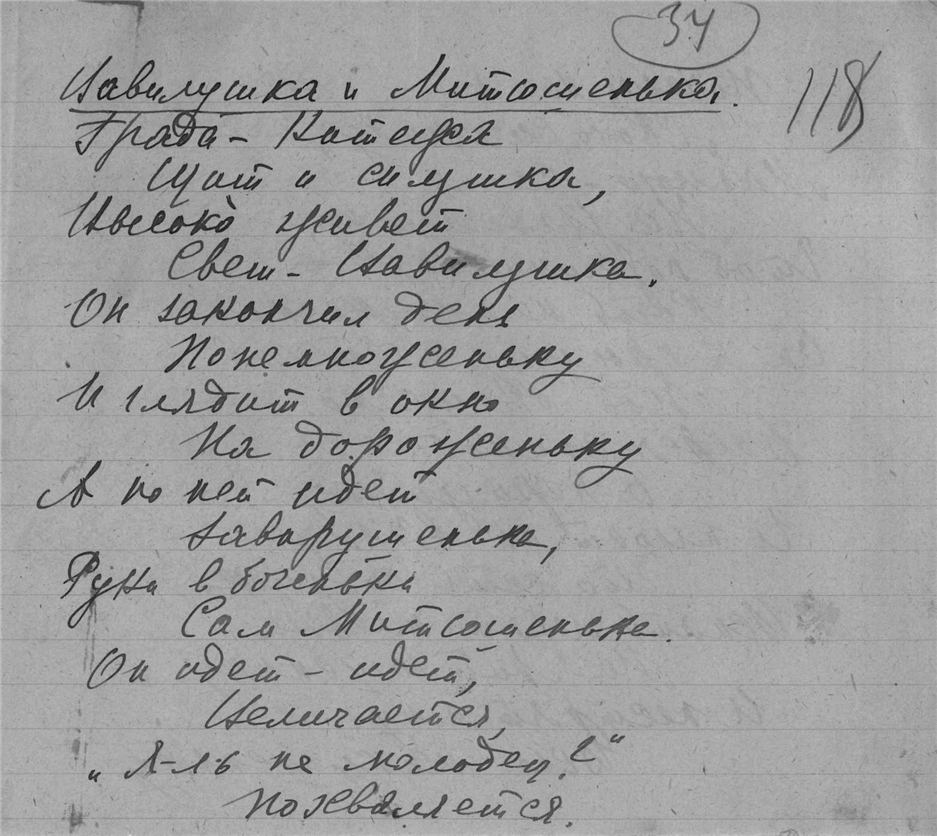 34
118
Вавилушка и Митюшенька.
Града-Китежа
Щит и силушка,
Высоко живет
Свет-Вавилушка.
Он закончил день
Понемноженьку
И глядит в окно
На дороженьку
А по ней идет
Заварушенька,
Руки в боченьки
Сам Митюшенька.
Он идет-идет,
Величается,
„Я-ль не молодец?“
Похваляется.